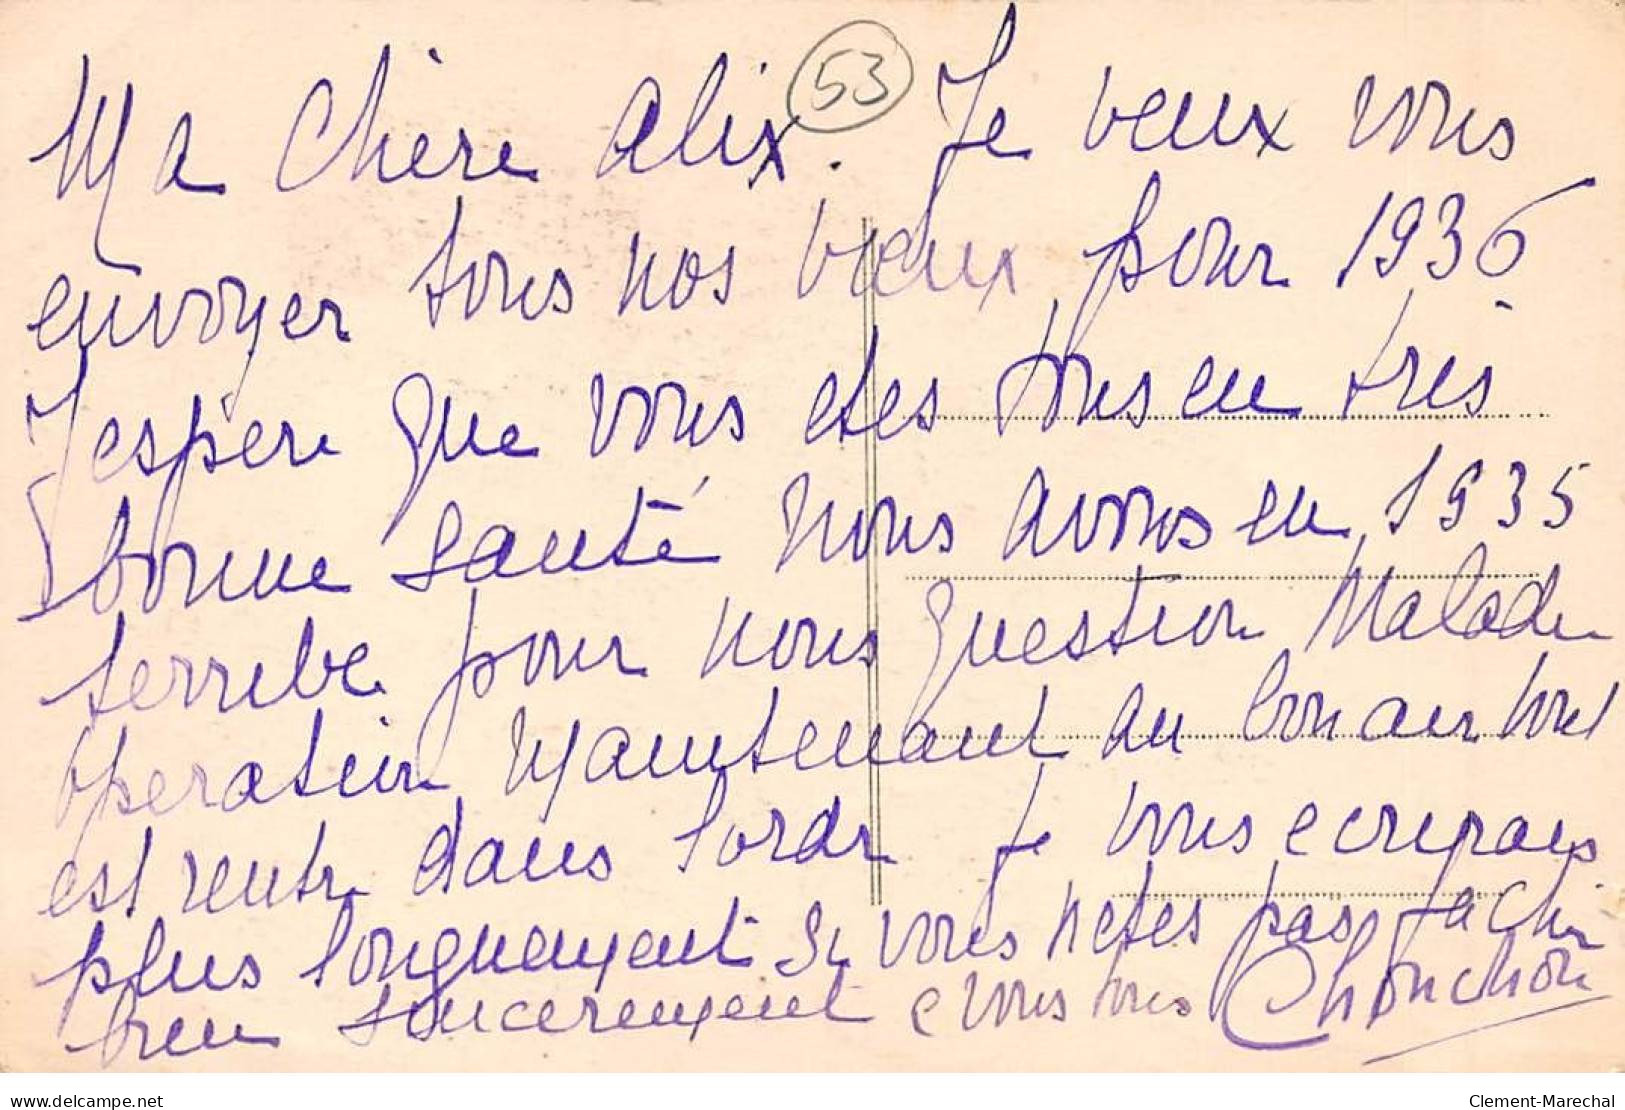 Ma chère Alix. 53 Je veux vous
envoyer tous nos vœux pour 1936
J'espere que vous etes tous en très
bonne santé nous avons en 1935
terrible pour nous question Malade
operation Maintenant au bon air tout
est rentre dans l'ordr je vous ecrirais
plus longuement si vous netes pas fachee
bien sincerement a vous tous Chonchon
www.delcampe.net
Clement-Marechal